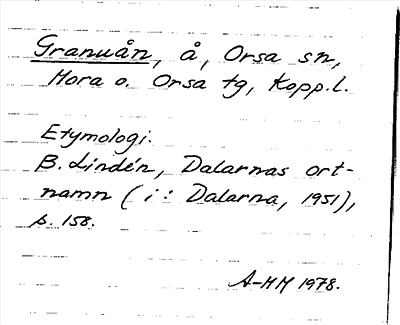 Granuån, å, Orsa sn,
Mora o. Orsa tg, Kopp.l.
Etymologi.
B. Lindén, Dalarnas ort-
namn (i: Dalarna, 1951),
s. 158.
A-MM 1978.